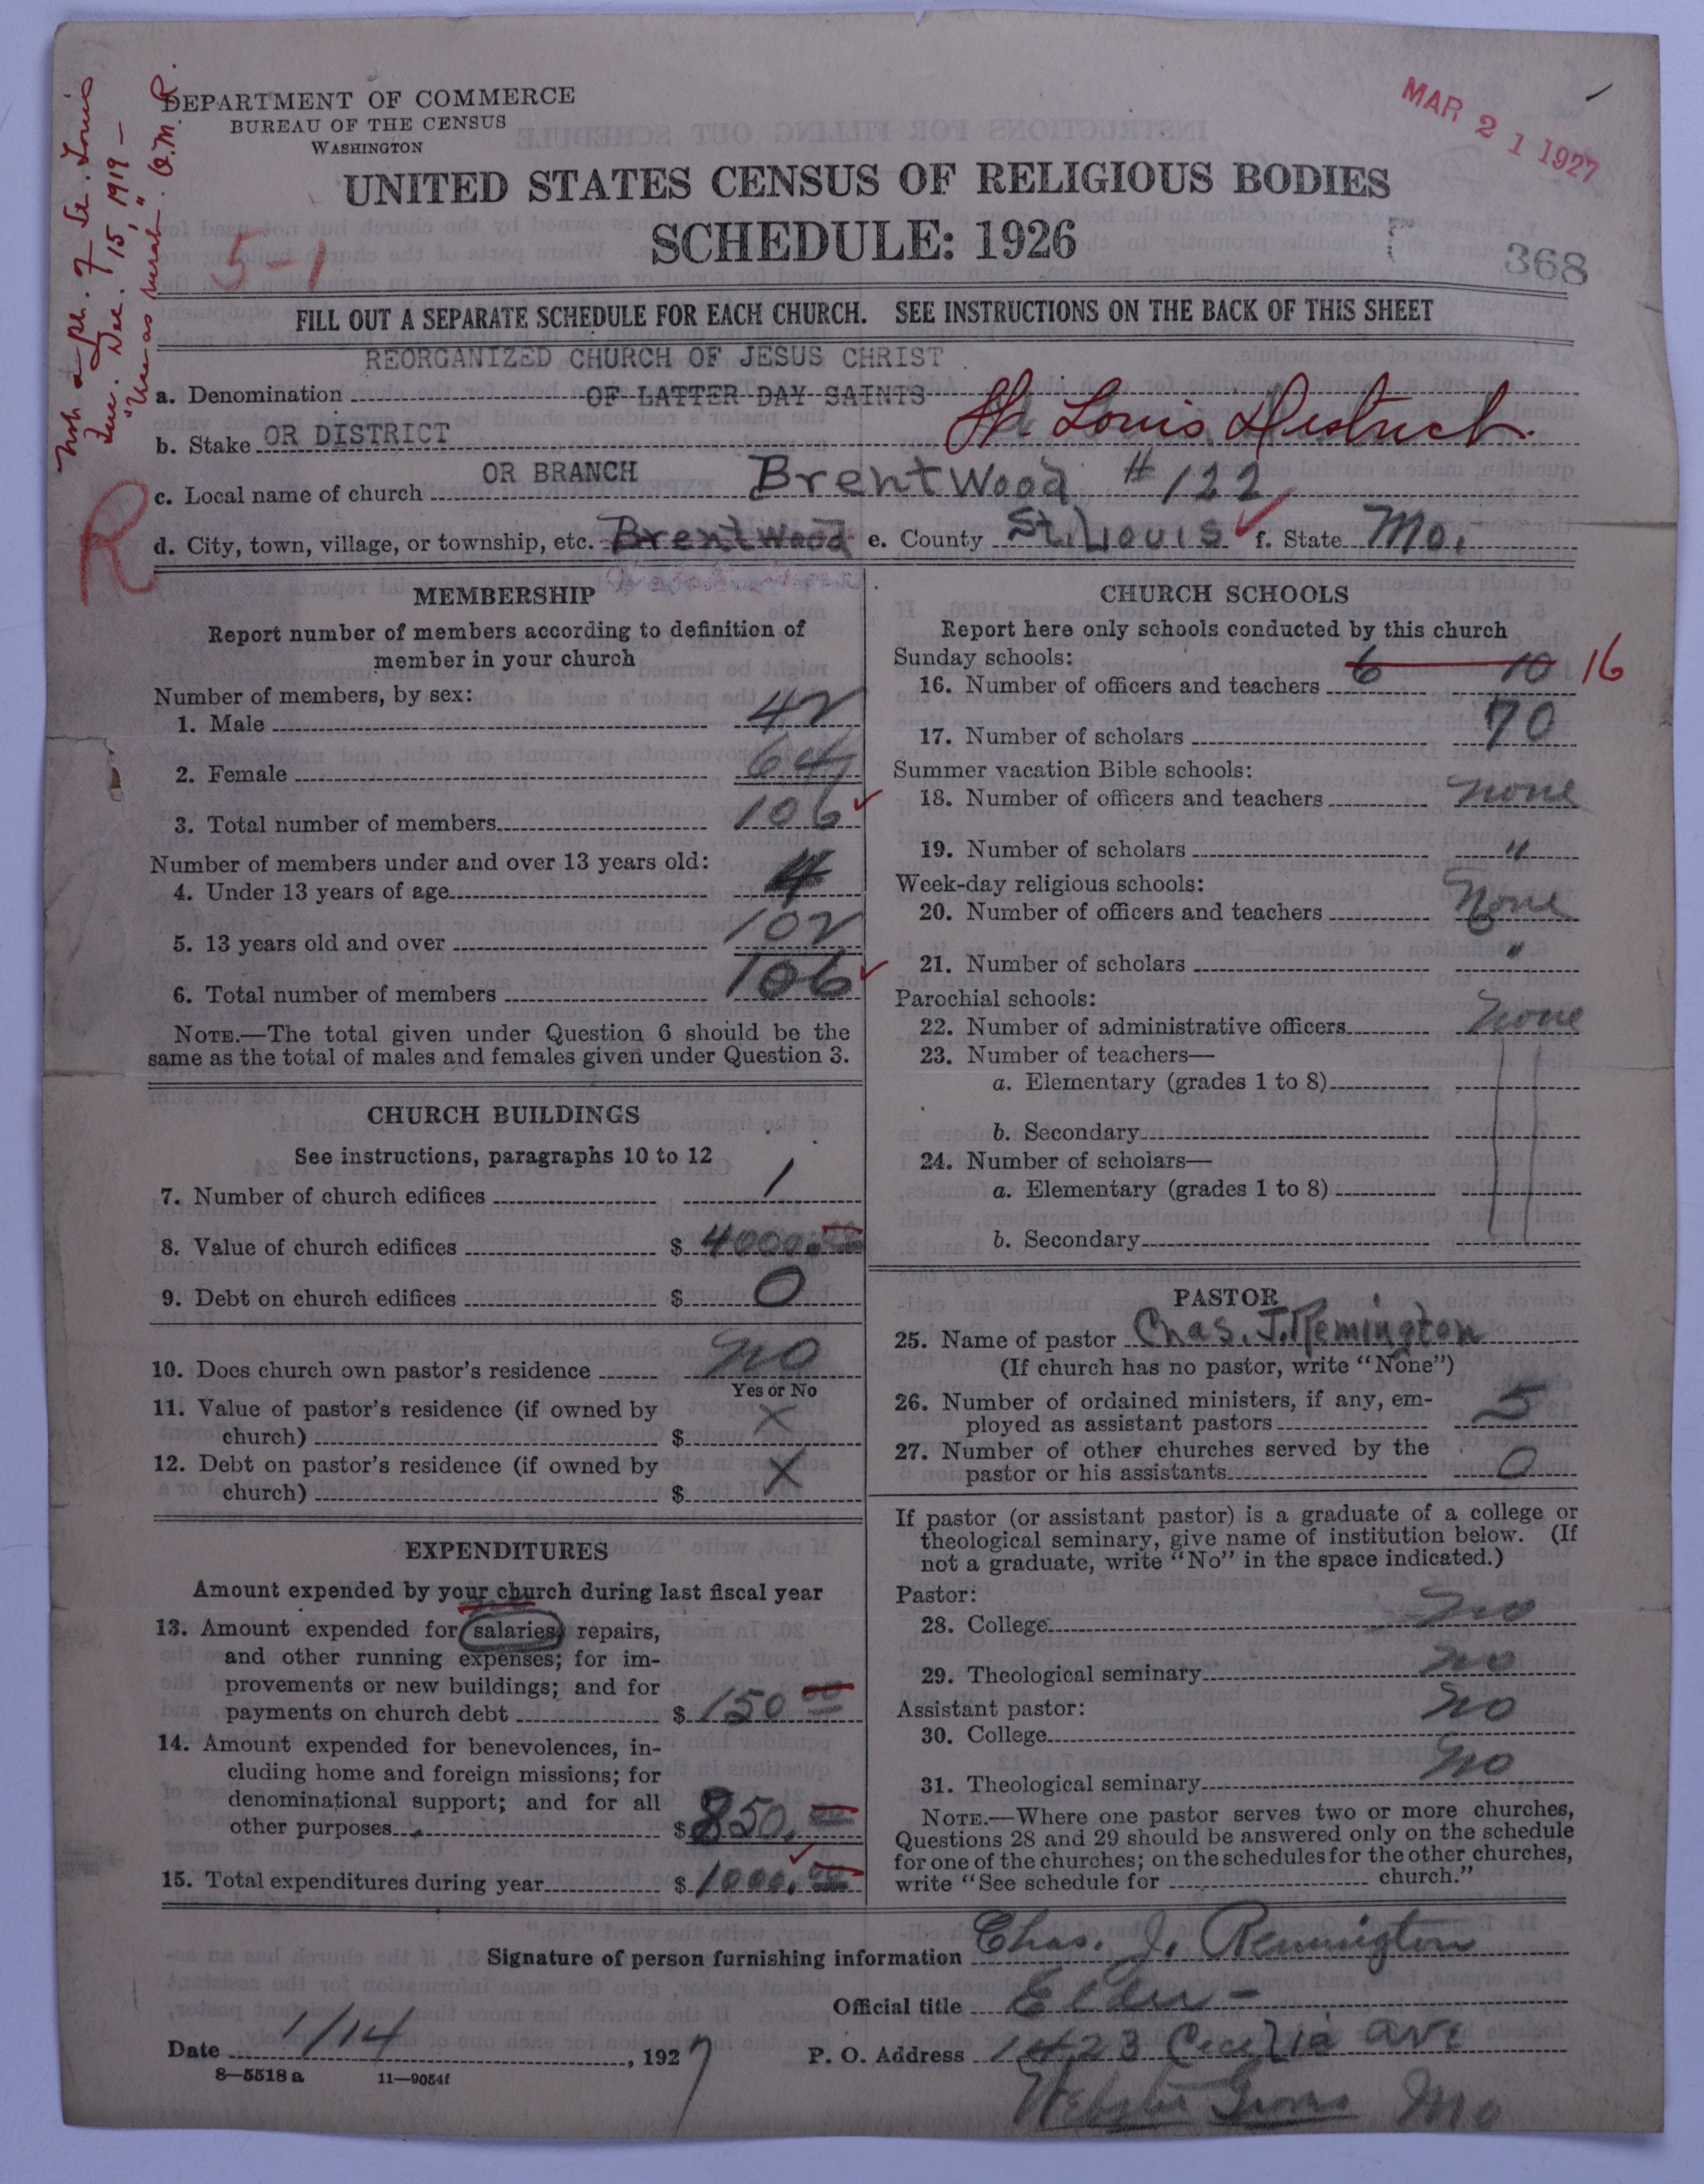 Not a pt. of St. Louis
Dec. 15, 1919 —
"Use as rural". O.M.R.
DEPARTMENT OF COMMERCE
BUREAU OF THE CENSUS
WASHINGTON
MAR 21 1927
UNITED STATES CENSUS OF RELIGIOUS BODIES
SCHEDULE: 1926
5-1
368
FILL OUT A SEPARATE SCHEDULE FOR EACH CHURCH. SEE INSTRUCTIONS ON THE BACK OF THIS SHEET
REORGANIZED CHURCH OF JESUS CHRIST
a. Denomination OF LATTER DAY SAINTS
b. Stake OR DISTRICT St. Louis District
c. Local name of church OR BRANCH BrentWood #122
R
d. City, town, village, or township, etc. BrentWood e. County St. Louis f. State Mo.
MEMBERSHIP
Report number of members according to definition of
member in your church
Number of members, by sex:
1. Male 42
2. Female 64
3. Total number of members 106
Number of members under and over 13 years old:
4. Under 13 years of age 4
5. 13 years old and over 102
6. Total number of members 106
NOTE.—The total given under Question 6 should be the
same as the total of males and females given under Question 3.
CHURCH BUILDINGS
See instructions, paragraphs 10 to 12
7. Number of church edifices 1
8. Value of church edifices $ 4000.00
9. Debt on church edifices $ 0
10. Does church own pastor's residence no
Yes or No
11. Value of pastor's residence (if owned by
church) $ X
12. Debt on pastor's residence (if owned by
church) $ X
EXPENDITURES
Amount expended by your church during last fiscal year
13. Amount expended for salaries, repairs,
and other running expenses; for im-
provements or new buildings; and for
payments on church debt $ 150 00
14. Amount expended for benevolences, in-
cluding home and foreign missions; for
denominational support; and for all
other purposes $ 850.00
15. Total expenditures during year $ 1000.00
CHURCH SCHOOLS
Report here only schools conducted by this church
Sunday schools:
16. Number of officers and teachers 6 10 16
17. Number of scholars 70
Summer vacation Bible schools:
18. Number of officers and teachers none
19. Number of scholars "
Week-day religious schools:
20. Number of officers and teachers None
21. Number of scholars "
Parochial schools:
22. Number of administrative officers none
23. Number of teachers—
a. Elementary (grades 1 to 8)
b. Secondary
24. Number of scholars—
a. Elementary (grades 1 to 8)
b. Secondary
PASTOR
25. Name of pastor Chas. J. Remington
(If church has no pastor, write "None")
26. Number of ordained ministers, if any, em-
ployed as assistant pastors 5
27. Number of other churches served by the
pastor or his assistants 0
If pastor (or assistant pastor) is a graduate of a college or
theological seminary, give name of institution below. (If
not a graduate, write "No" in the space indicated.)
Pastor:
28. College no
29. Theological seminary no
Assistant pastor:
30. College no
31. Theological seminary no
NOTE.—Where one pastor serves two or more churches,
Questions 28 and 29 should be answered only on the schedule
for one of the churches; on the schedules for the other churches,
write "See schedule for church."
Signature of person furnishing information Chas. J. Remington
Official title Elder-
Date 1/14, 1927
P. O. Address 1423 Cecelia ave
Webster Groves Mo
8—5518 a 11—9054f